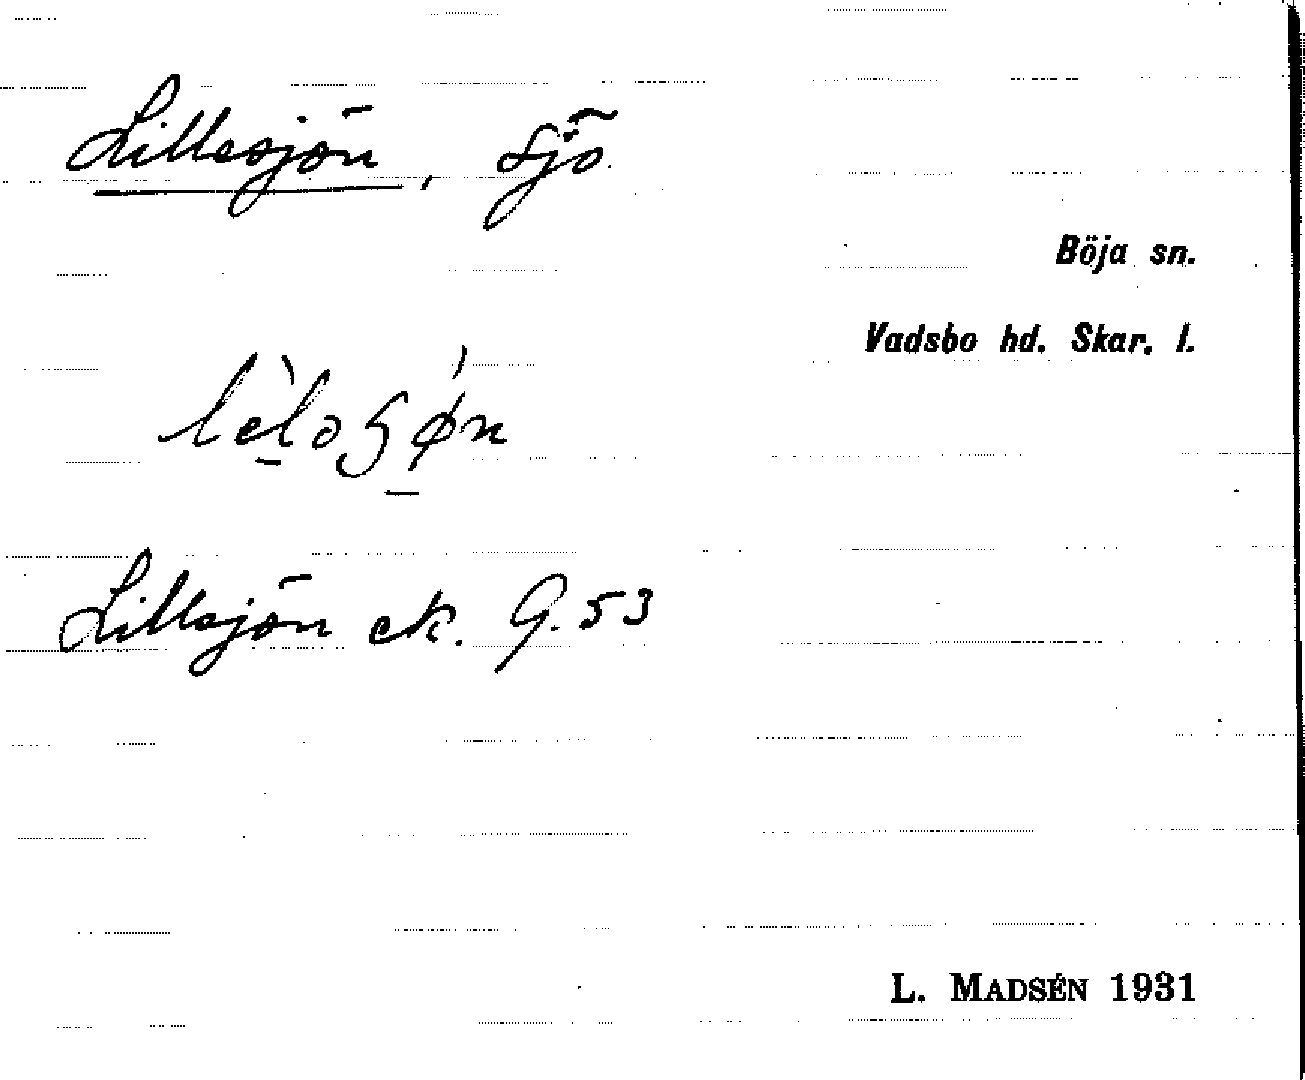 Lillesjön, sjö
Böja sn.
Vadsbo hd. Skar. l.
Lillsjön ek. 9.53
L. MADSÉN 1931